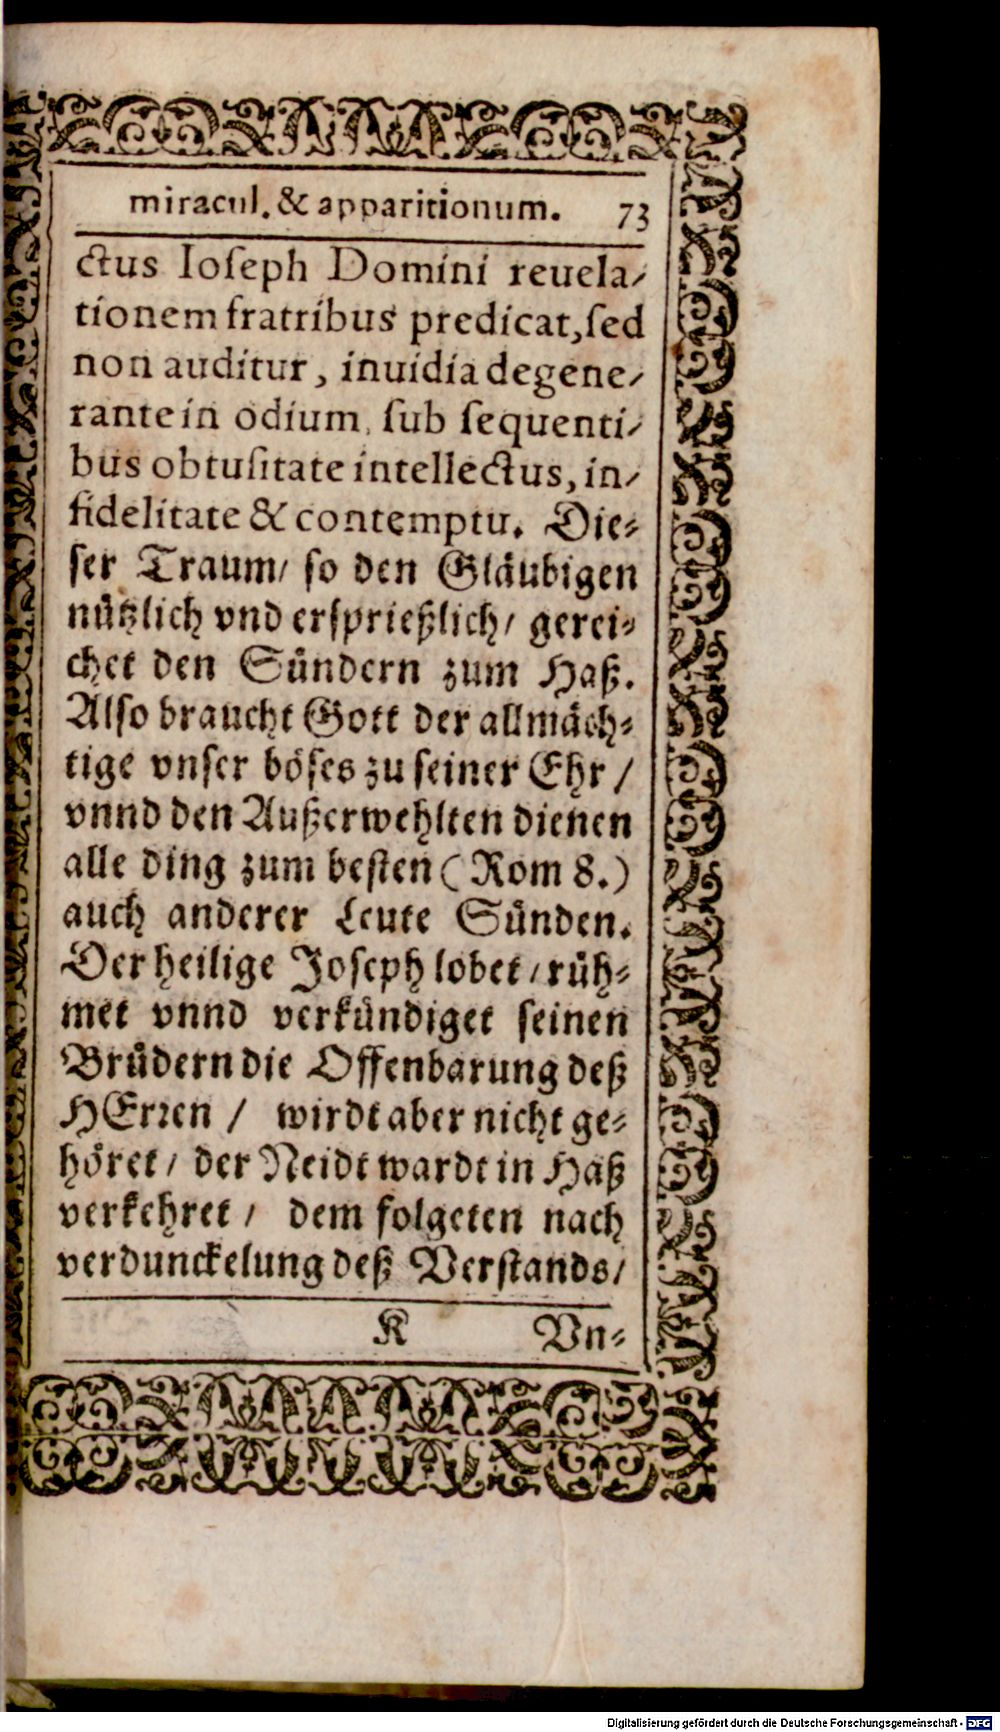 miracul. & apparitionum. 73
ctus Ioſeph Domini reuela-
tionem fratribus predicat, ſed
non auditur, inuidia degene-
rante in odium, ſub ſequenti-
bus obtuſitate intellectus, in-
fidelitate & contemptu. Die-
ſer Traum/ ſo den Gläubigen
nützlich vnd erſprießlich/ gerei-
chet den Sündern zum Haß.
Alſo braucht Gott der allmäch-
tige vnſer böſes zu ſeiner Ehr /
vnnd den Außerwehlten dienen
alle ding zum beſten (Rom 8.)
auch anderer Leute Sünden.
Der heilige Joſeph lobet / rüh-
met vnnd verkündiget ſeinen
Brüdern die Offenbarung deß
HErꝛen / wirdt aber nicht ge-
höret / der Neidt wardt in Haß
verkehret / dem folgeten nach
verdunckelung deß Verſtands/
K Vn-
Digitalisierung gefördert durch die Deutsche Forschungsgemeinschaft - DFG